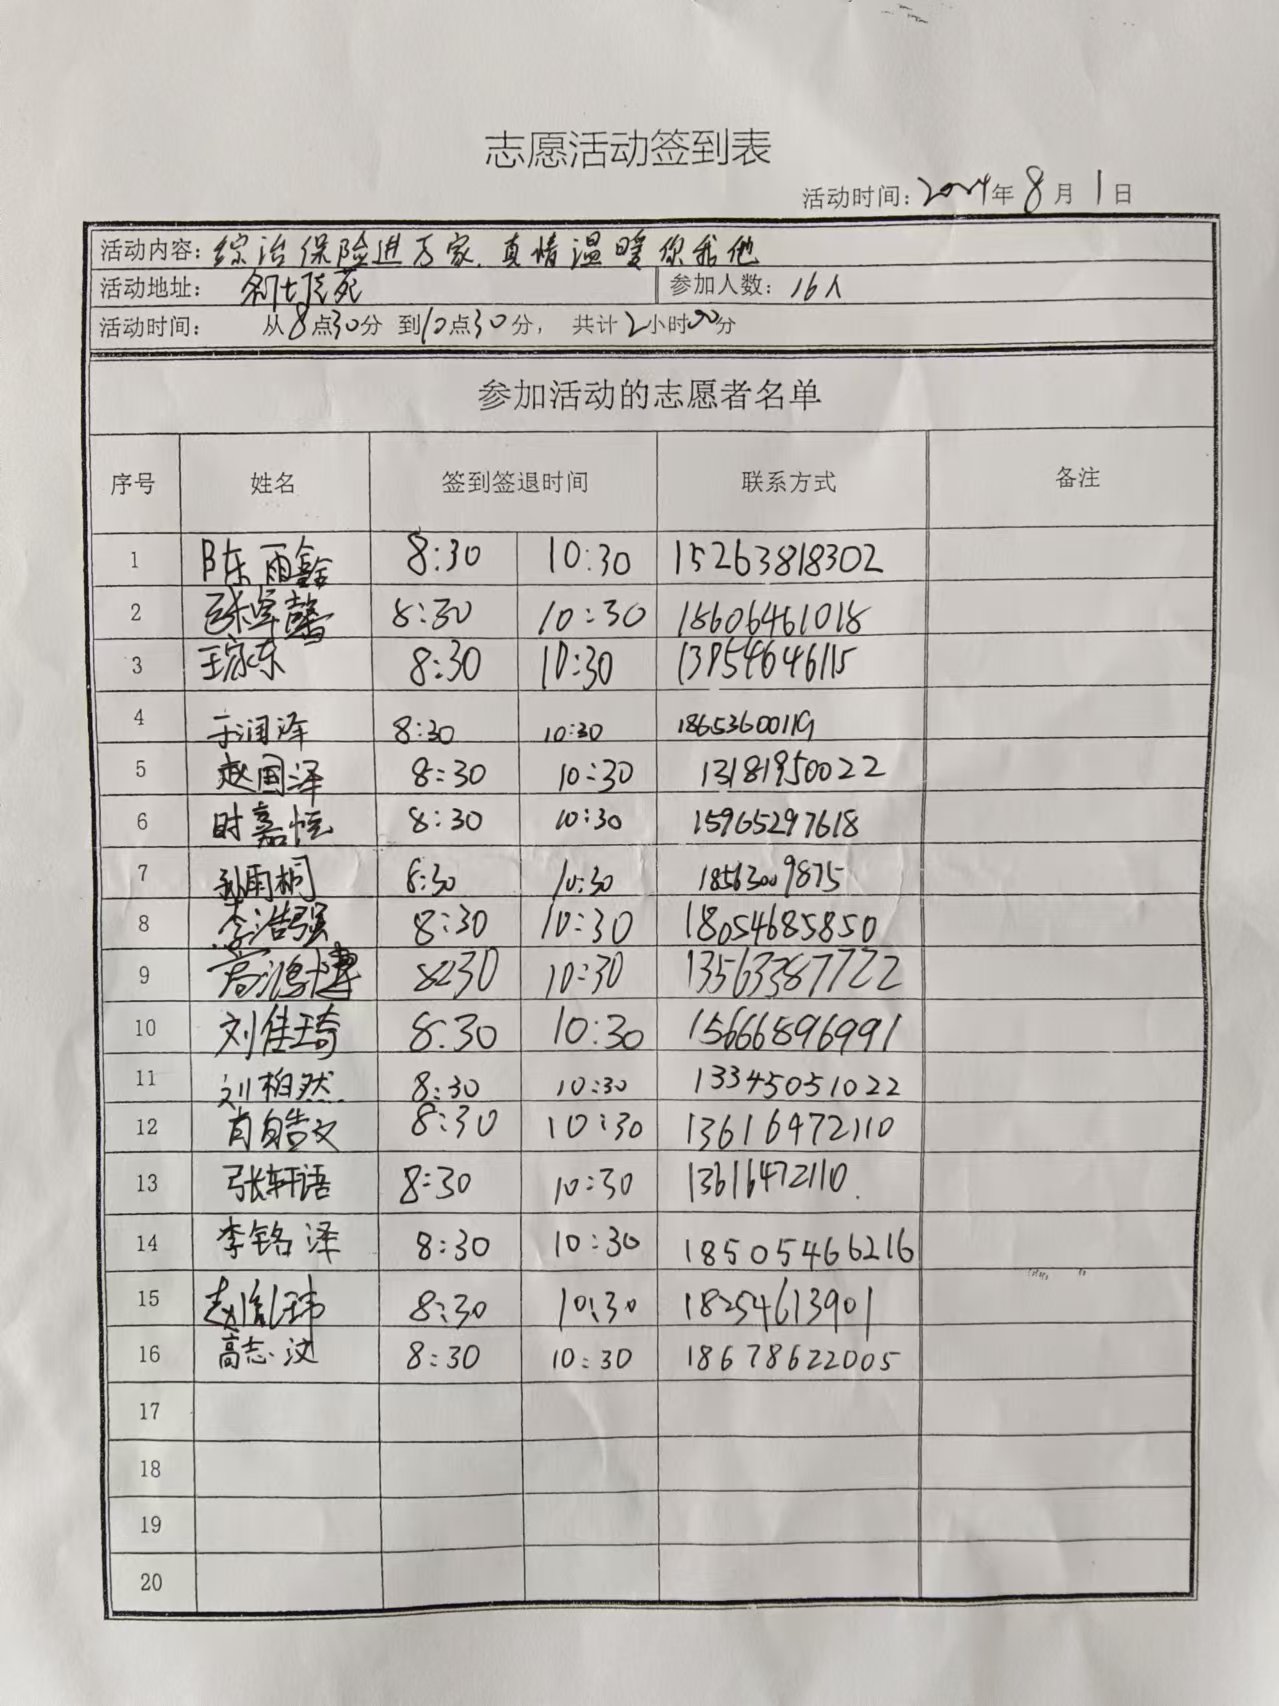 志愿活动签到表
活动时间: 2024年 8月 1日
活动内容: 综治保险进万家.真情温暖你我他
活动地址: 参加人数: 16人
活动时间: 从8点30分 到10点30分, 共计2小时00分
参加活动的志愿者名单
序号 姓名 签到签退时间 联系方式 备注
1 陈雨鑫 8:30 10:30 15263818302
2 8:30 10:30 18606461018
3 王家东 8:30 10:30 13954646115
4 于润泽 8:30 10:30 18653600119
5 赵国泽 8:30 10:30 13181950022
6 时嘉恒 8:30 10:30 15965297618
7 孙雨桐 8:30 10:30 18563009875
8 李浩强 8:30 10:30 18054685850
9 高鸿博 8:30 10:30 13563387722
10 刘佳琦 8:30 10:30 15666896991
11 刘柏然 8:30 10:30 13345051022
12 肖皓文 8:30 10:30 13616472110
13 张轩语 8:30 10:30 13616472110.
14 李铭泽 8:30 10:30 18505466216
15 8:30 10:30 18254613901
16 高志汶 8:30 10:30 18678622005
17
18
19
20